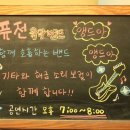 퓨전 밴드
앵두야
함께 소통하는 밴드
앵두야
기타와 해금 그리고 보컬이
함께 합니다!
공연시간 오후 7:00~8:00